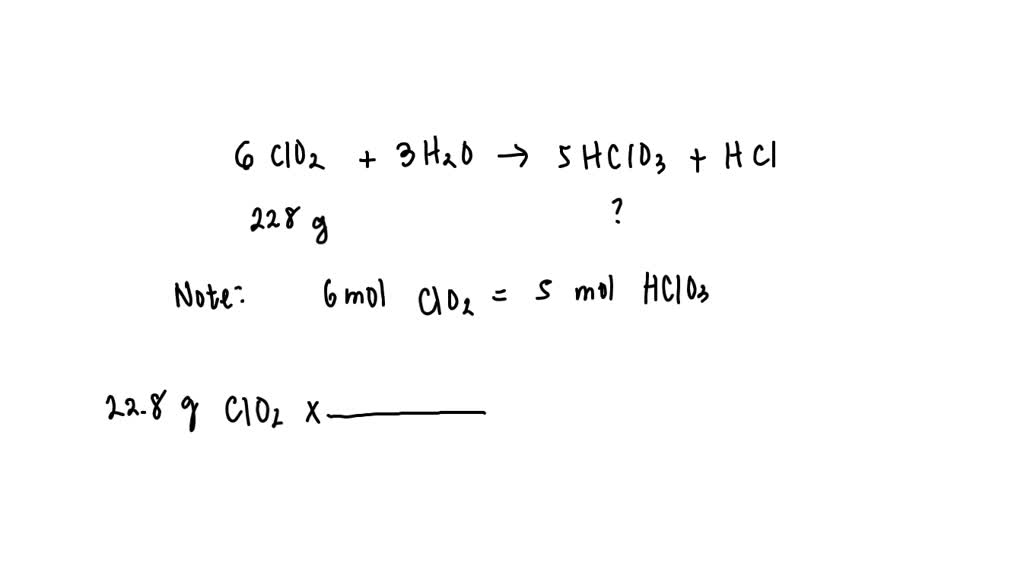 6 ClO2 + 3H2O → 5HClO3 + HCl
228 g ?
Note: 6 mol ClO2 = 5 mol HClO3
22.8 g ClO2 x